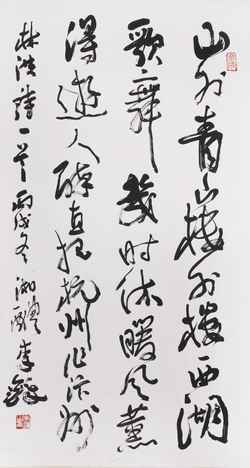 山外青山楼外楼西湖
歌舞幾时休暖风薰
得遊人醉直把杭州作汴州
林洪詩一首丙戌冬湘醴李鐸